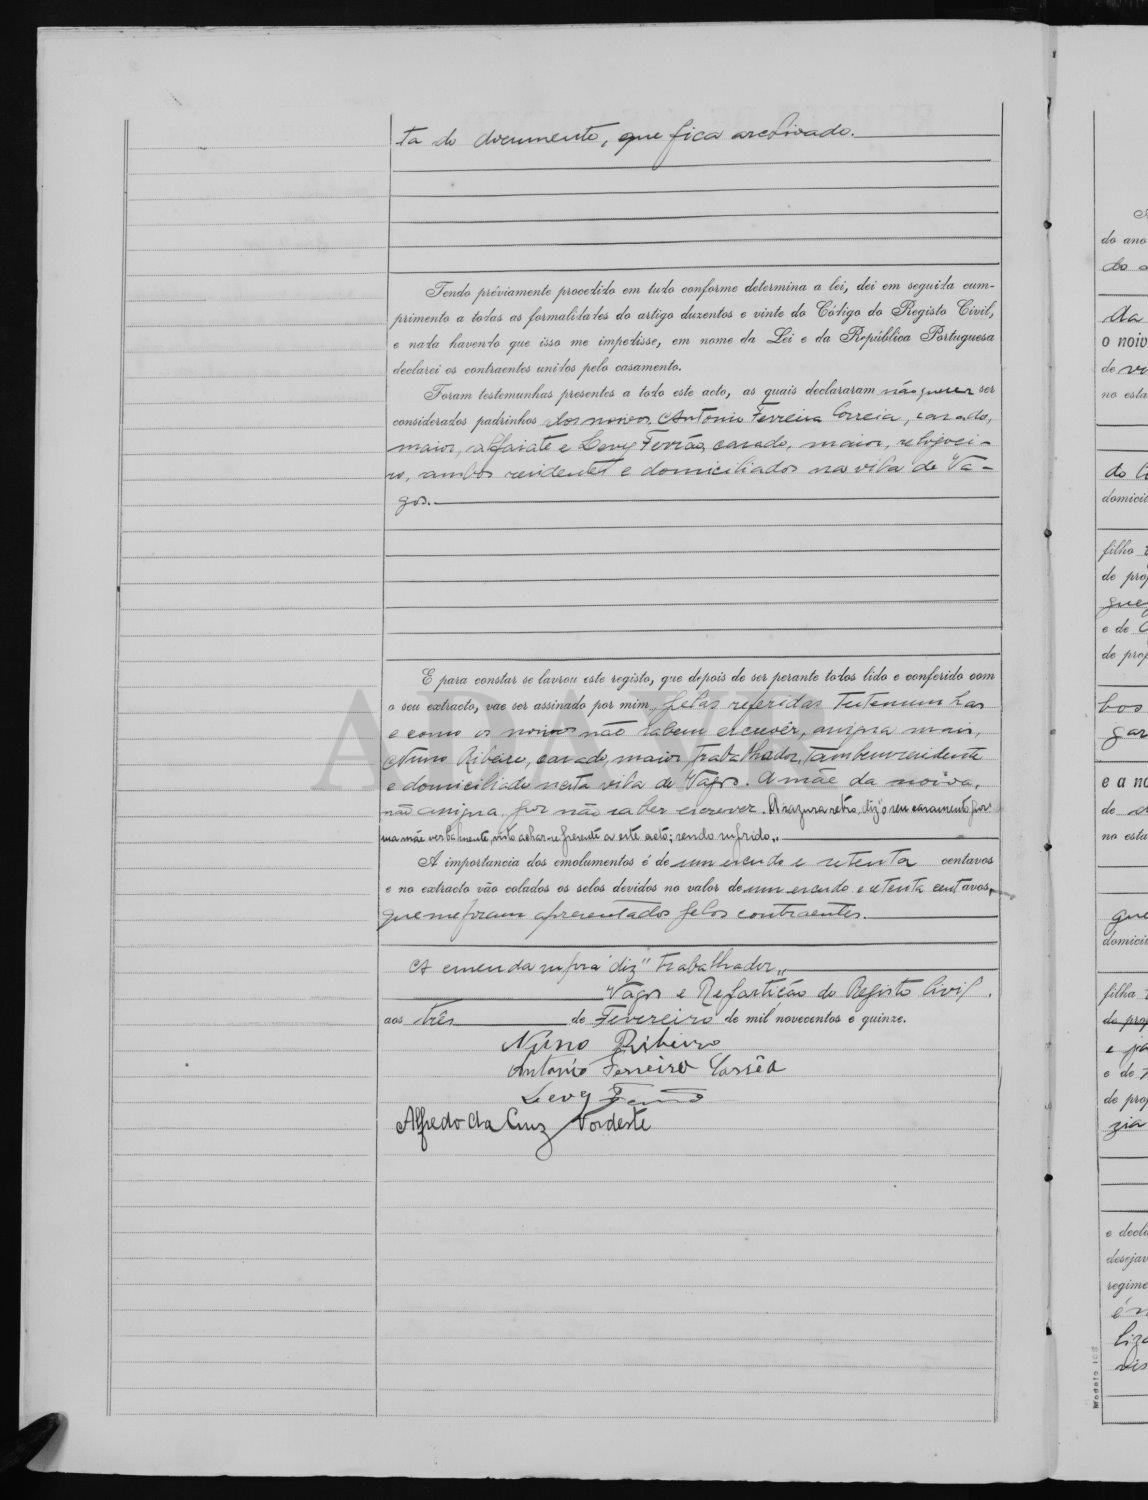 ta do documento, que fica archivado.
Tendo préviamente procedido em tudo conforme determina a lei, dei em seguida cum-
primento a todas as formalidades do artigo duzentos e vinte do Código do Registo Civil,
e nada havendo que isso me impedisse, em nome da Lei e da República Portuguesa
declarei os contraentes unidos pelo casamento.
Foram testemunhas presentes a todo este acto, as quais declararam não querer ser
considerados padrinhos dos noivos, Antonio Ferreira Correia, casado,
maior, alfaiate e Levy Ferrão, casado, maior, relojoei-
ro, ambos residentes e domiciliados na vila de Va-
gos.
E para constar se lavrou este registo, que depois de ser perante todos lido e conferido com
o seu extracto, vae ser assinado por mim, pelas referidas testemunhas
e como os noivos não sabem escrevêr, assigna mais,
Nuno Ribeiro, casado, maior, trabalhador, tambem residente
e domiciliado nesta vila de Vagos. A mãe da noiva,
não assigna, por não saber escrever. A razura retro, diz "o seu casamento por
sua mãe verbalmente, visto achar-se presente a este acto; sendo nefrido".
A importancia dos emolumentos é de um escudo e setenta centavos
e no extracto vão colados os selos devidos no valor de um escudo e setenta centavos,
que me foram apresentados pelos contraentes.
A emenda supra diz "trabalhador"
Vagos e Repartição do Registo Civil,
aos três de Fevereiro de mil novecentos e quinze.
Nuno Ribeiro
Antonio Ferreira Corrêa
Levy Ferrão
Alfredo da Cruz Nordeste
ADAVR
do ano
da
o noiv
de
no esta
domicil
filho
de prop
e de
de prop
bos
gar
e a no
de
no esta
que
domicil
filha
de prop
e de
de prop
zia
e decla
desejav
regime
Modelo 10